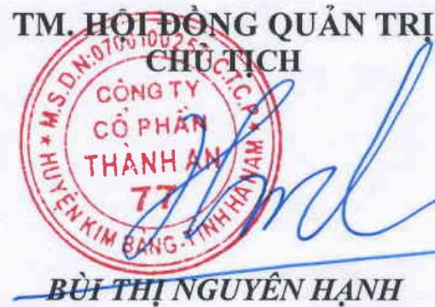 TM. HỘI ĐỒNG QUẢN TRỊ
CHỦ TỊCH
M.S.D.N:0700100253-C.T.C.P
CÔNG TY
CỔ PHẦN
THÀNH AN
77
HUYỆN KIM BẢNG-TỈNH HÀ NAM
BÙI THỊ NGUYÊN HẠNH